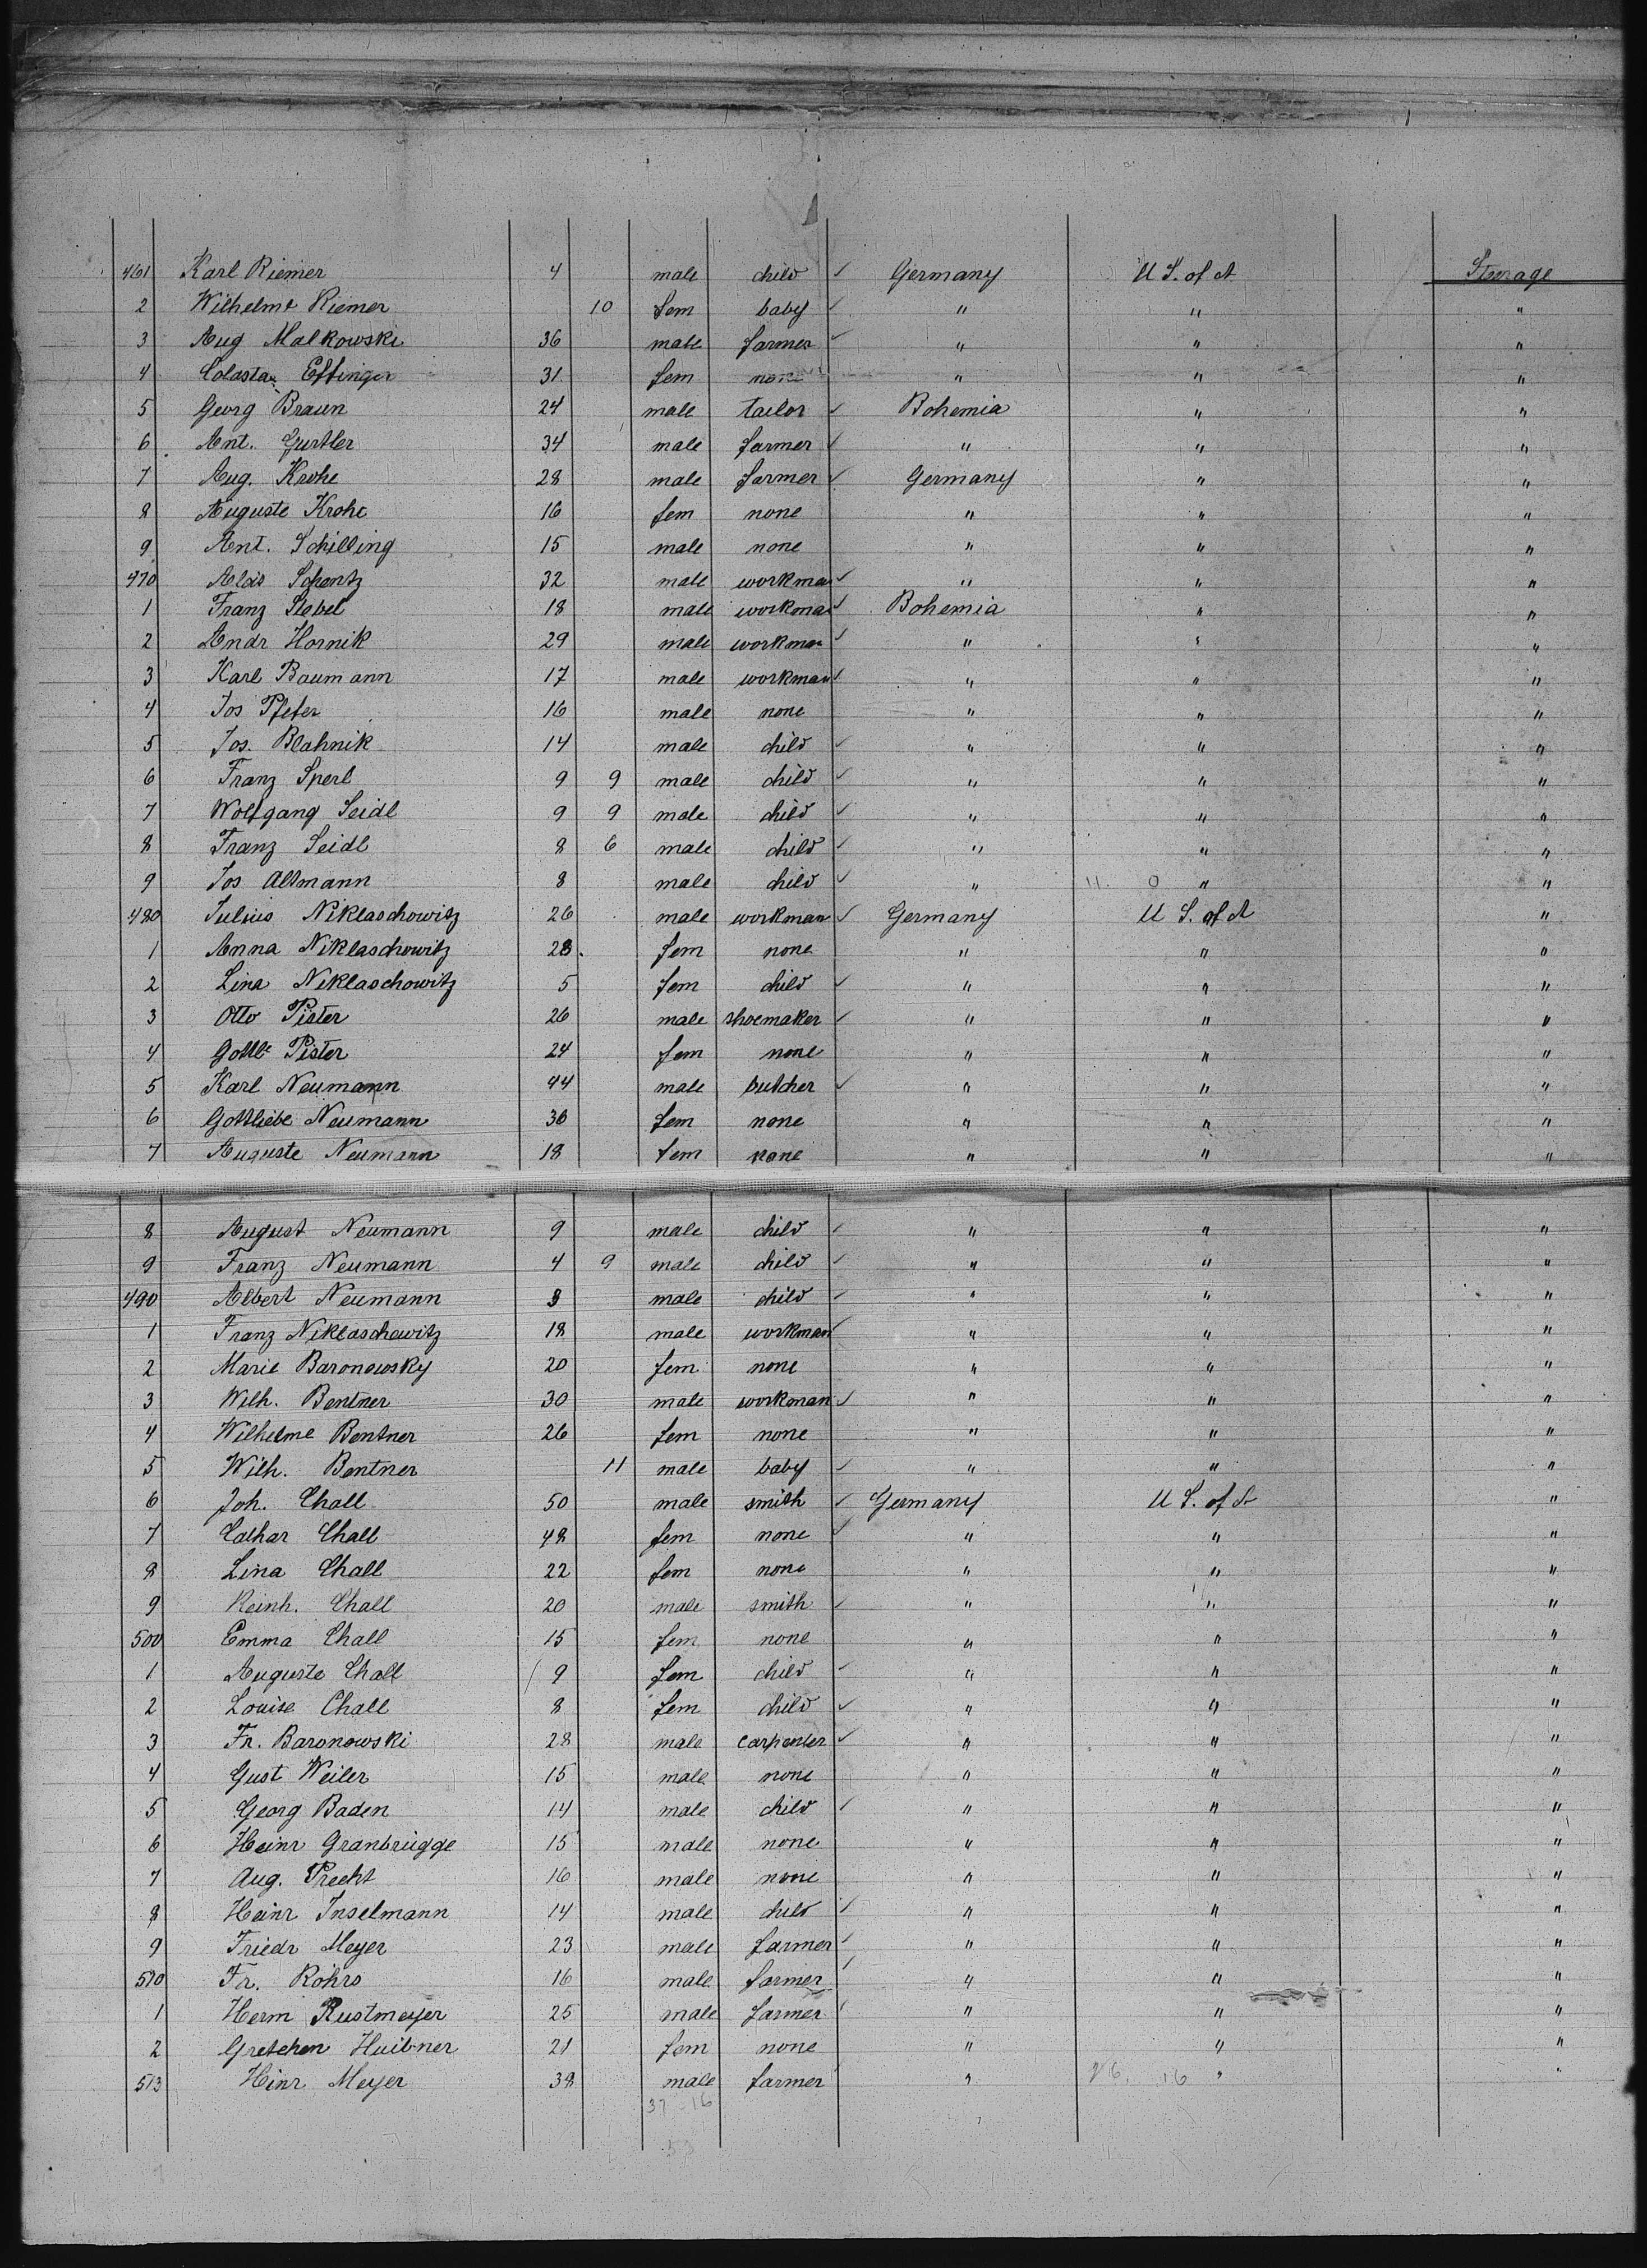 461 Karl Riemer 4 male child ✓ Germany U S. of A. Steerage
2 Wilhelme Riemer 10 fem baby ✓ " " "
3 Aug Malkowski 36 male farmer ✓ " " "
4 Effinger 31 fem none " " "
5 Georg Braun 24 male tailor ✓ Bohemia " "
6 Ant. Gürtler 34 male farmer ✓ " " "
7 Aug. Krohe 28 male farmer ✓ Germany " "
8 Auguste Krohe 16 fem none " " "
9 Ant. Schilling 15 male none " " "
470 Alois Schantz 32 male workman ✓ " " "
1 Franz Stebel 18 male workman ✓ Bohemia " "
2 Andr Hornik 29 male workman ✓ " " "
3 Karl Baumann 17 male workman ✓ " " "
4 Jos Pfefer 16 male none " " "
5 Jos. Blahnik 14 male child ✓ " " "
6 Franz Sperl 9 9 male child ✓ " " "
7 Wolfgang Seidl 9 9 male child ✓ " " "
8 Franz Seidl 8 6 male child ✓ " " "
9 Jos Altmann 8 male child ✓ " 11. 0 " "
480 Julius Niklaschowitz 26 male workman ✓ Germany U S. of A "
1 Anna Niklaschowitz 28. fem none " " "
2 Lina Niklaschowitz 5 fem child ✓ " " "
3 Otto Pister 26 male shoemaker ✓ " " "
4 Gottle Pister 24 fem none " " "
5 Karl Neumann 44 male butcher ✓ " " "
6 Gottliebe Neumann 36 fem none " " "
7 Auguste Neumann 18 fem none " " "
8 August Neumann 9 male child ✓ " " "
9 Franz Neumann 4 9 male child ✓ " " "
490 Albert Neumann 3 male child ✓ " " "
1 Franz Niklaschowitz 18 male workman ✓ " " "
2 Marie Baronowsky 20 fem none " " "
3 Wilh. Bentner 30 male workman ✓ " " "
4 Wilhelme Bentner 26 fem none " " "
5 Wilh. Bentner 11 male baby ✓ " " "
6 Joh. Chall 50 male smith ✓ Germany U S. of A "
7 Cathar Chall 48 fem none ✓ " " "
8 Lina Chall 22 fem none " " "
9 Reinh. Chall 20 male smith ✓ " " "
500 Emma Chall 15 fem none " " "
1 Auguste Chall 9 fem child ✓ " " "
2 Louise Chall 8 fem child ✓ " " "
3 Fr. Baronowski 28 male carpenter ✓ " " "
4 Gust Weiler 15 male none " " "
5 Georg Baden 14 male child ✓ " " "
6 Heinr Granbrügge 15 male none " " "
7 Aug. Precht 16 male none " " "
8 Heinr Inselmann 14 male child ✓ " " "
9 Friedr Meyer 23 male farmer ✓ " " "
510 Fr. Röhrs 16 male farmer ✓ " " "
1 Herm Rustmeyer 25 male farmer ✓ " " "
2 Gretchen Huibner 21 fem none " " "
513 Hinr Meyer 38 male farmer " 26. 16 " "
37 - 16
53